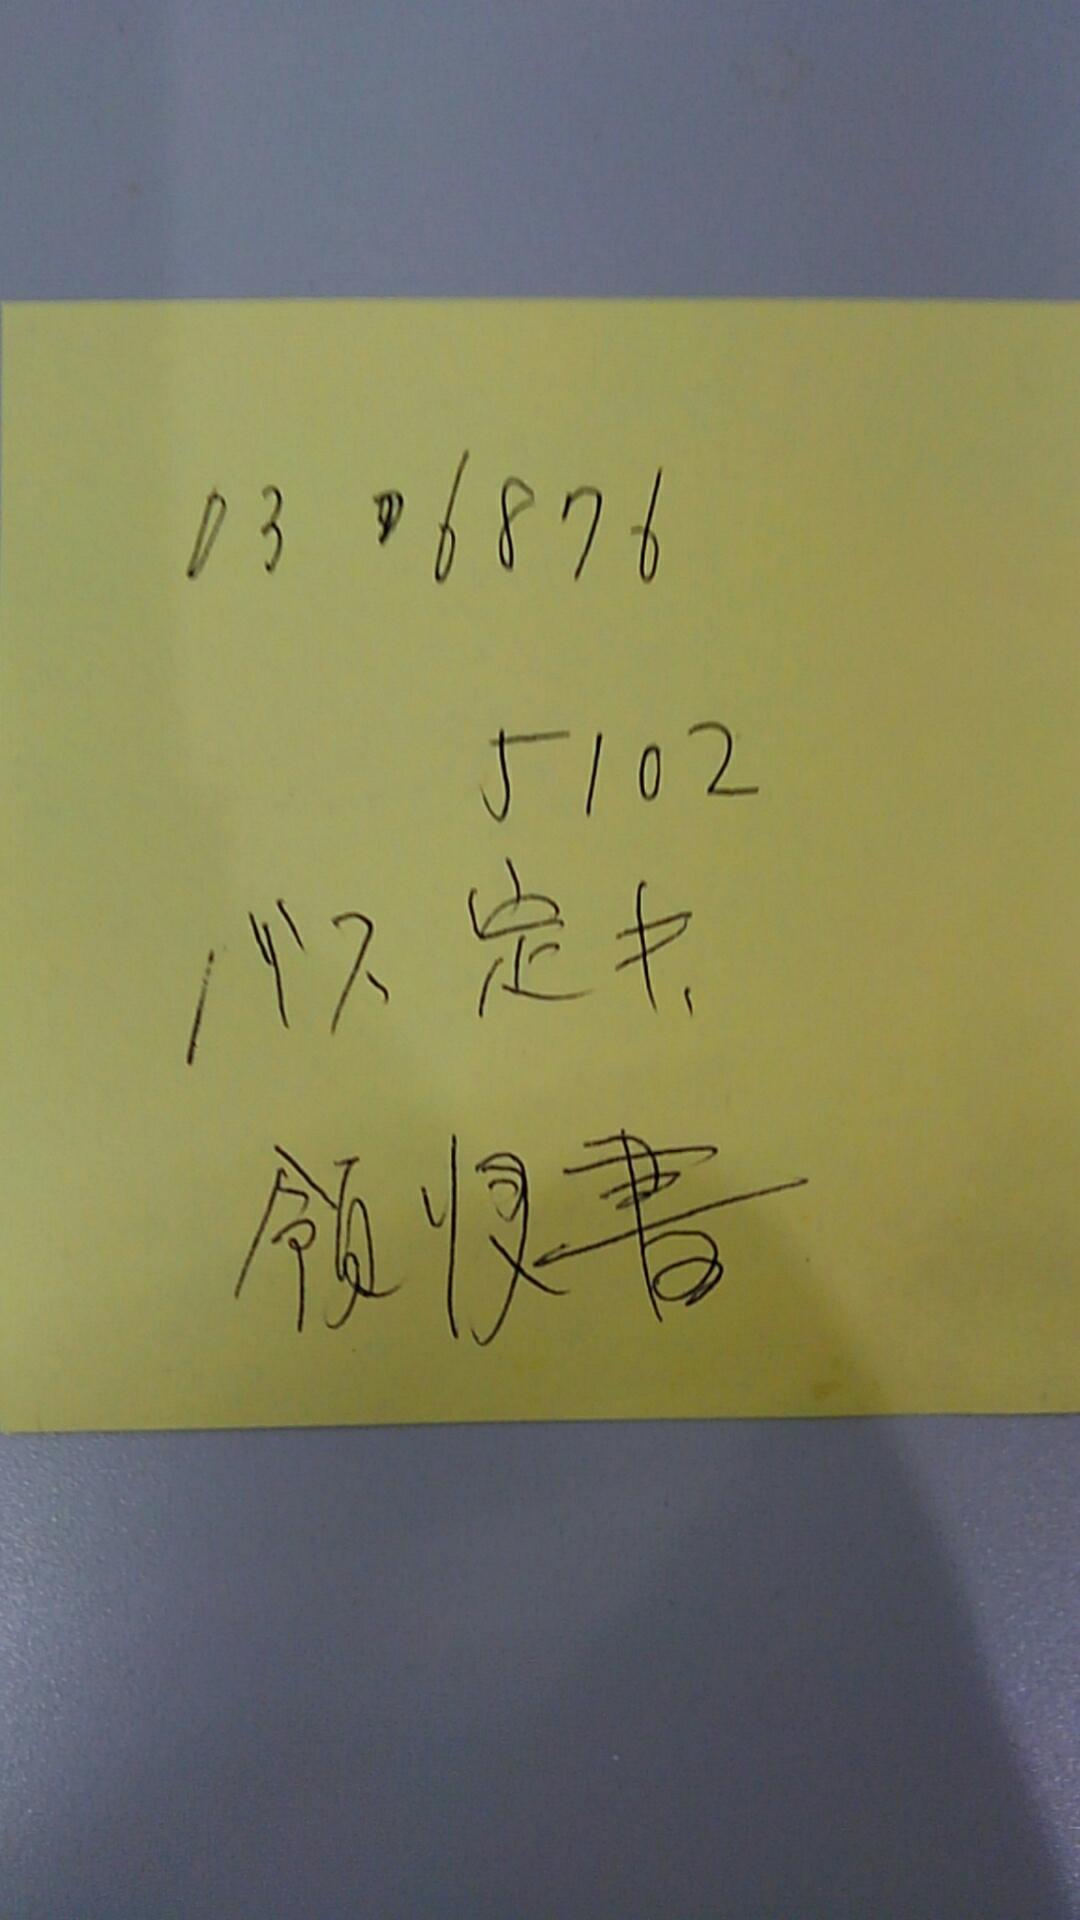 03 6876
5102
バス 定期
領収書